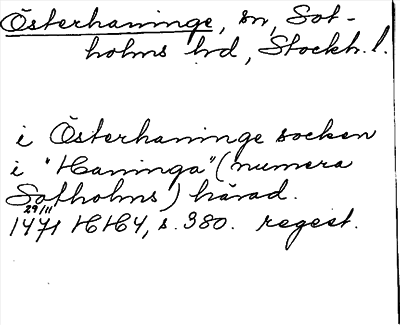 Österhaninge, sn, Sot-
holms hd, Stockh. l.
i Österhaninge socken
i "Haninga" (numera
Sotholms) härad.
29/11
1471 HH4, s. 380. regest.